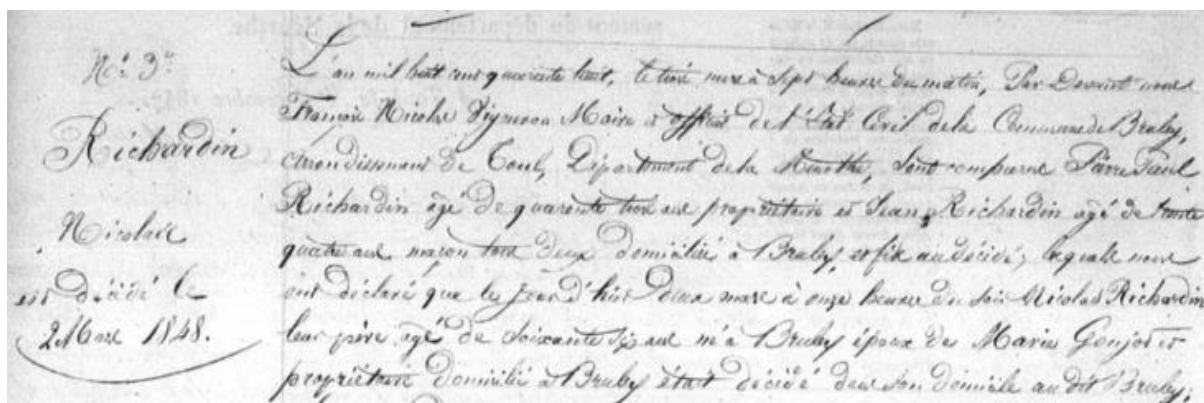 N.o 3.e
Richardin
Nicolas
est décédé le
2 Mars 1848.
L'an mil huit cent quarante huit, le trois mars à sept heures du matin, Par Devant nous
François Nicolas Vigneron Maire et officier de l'Etat Civil de la Commune de Bruley,
arrondissement de Toul, Département de la Meurthe, sont comparus Pierre Paul
Richardin âgé de quarante trois ans propriétaire et Jean Richardin âgé de trente
quatre ans maçon tous deux domiciliés à Bruley, et fils au décédé, lesquels nous
ont déclaré que le jour d'hier deux mars à onze heures du soir Nicolas Richardin
leur père, âgé de soixante six ans né à Bruley époux de Marie Goujot et
propriétaire domicilié à Bruley était décédé dans son domicile au dit Bruley,